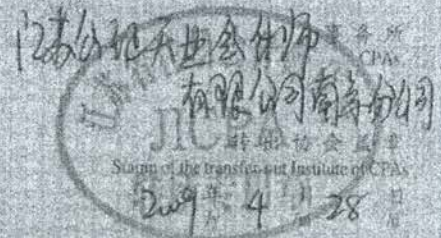 江苏公证天业会计师 事务所
CPAs
有限公司南京分公司
JICPA
转出协会盖章
Stamp of the transfer-out Institute of CPAs
2009 年 4 月 28 日